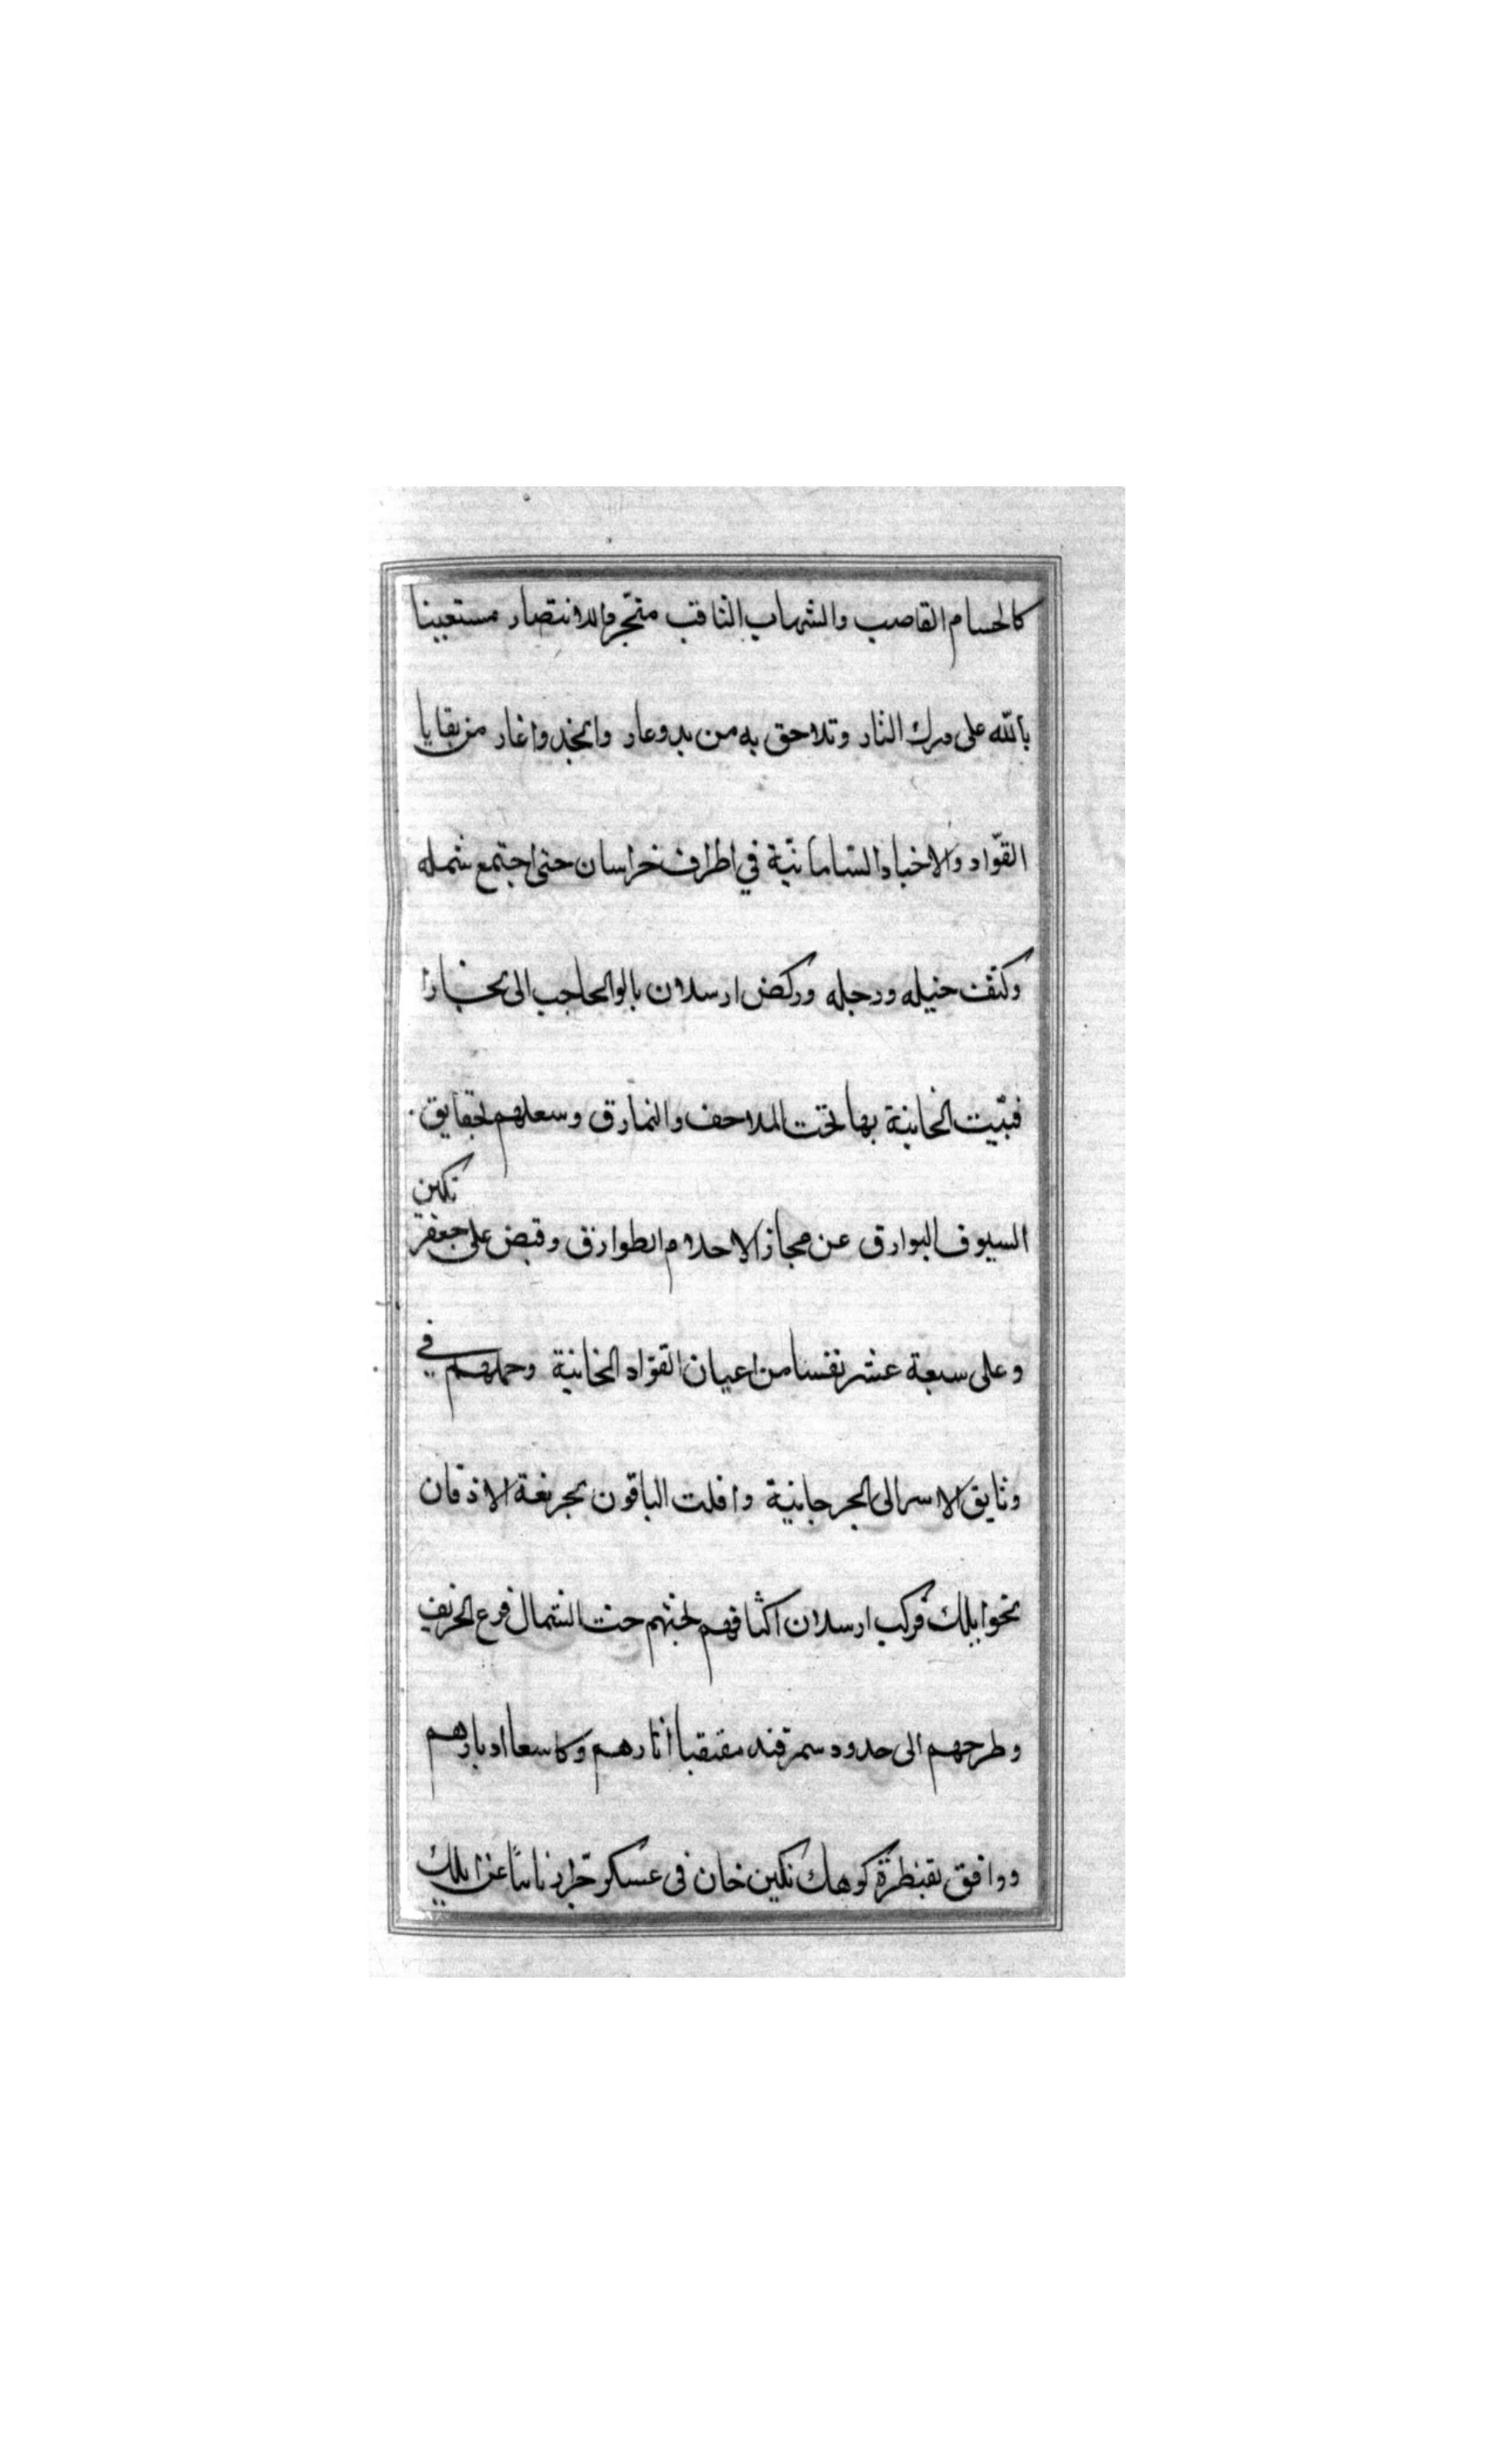 كالحسام القاصب والشهاب الثاقب متجر والانتصار مستعينا
بالله على درك الثار وتلاحق به من بد وعار وانجد واغار من بقايا
القوّاد والاخباد السّامانيّة في اطراف خراسان حتى اجتمع شمله
وكثفت خيله ورجله وركض ارسلان بالو الحاجب الى بخارا
فبيّت الخانية بها تحت الملاحف والنمارق وسعلهم بحقايق
السيوف البوارق عن مجاز الاحلام الطوارق وقبض على جعفر تكين
وعلى سبعة عشر نفسا من اعيان القوّاد الخانية وحملهم في
وثايق الاسر الى الجرجانية وافلت الباقون بجريعة الاذقان
نحو ايلك فركب ارسلان اكتافهم لحثهم حث الشمال قزع الخريف
وطرحهم الى حدود سمرقند مقتفيا اثارهم وكاسعا ادبارهم
ووافق بقنطرة كوهك تكين خان فى عسكر جرار نائبا عن ايلك